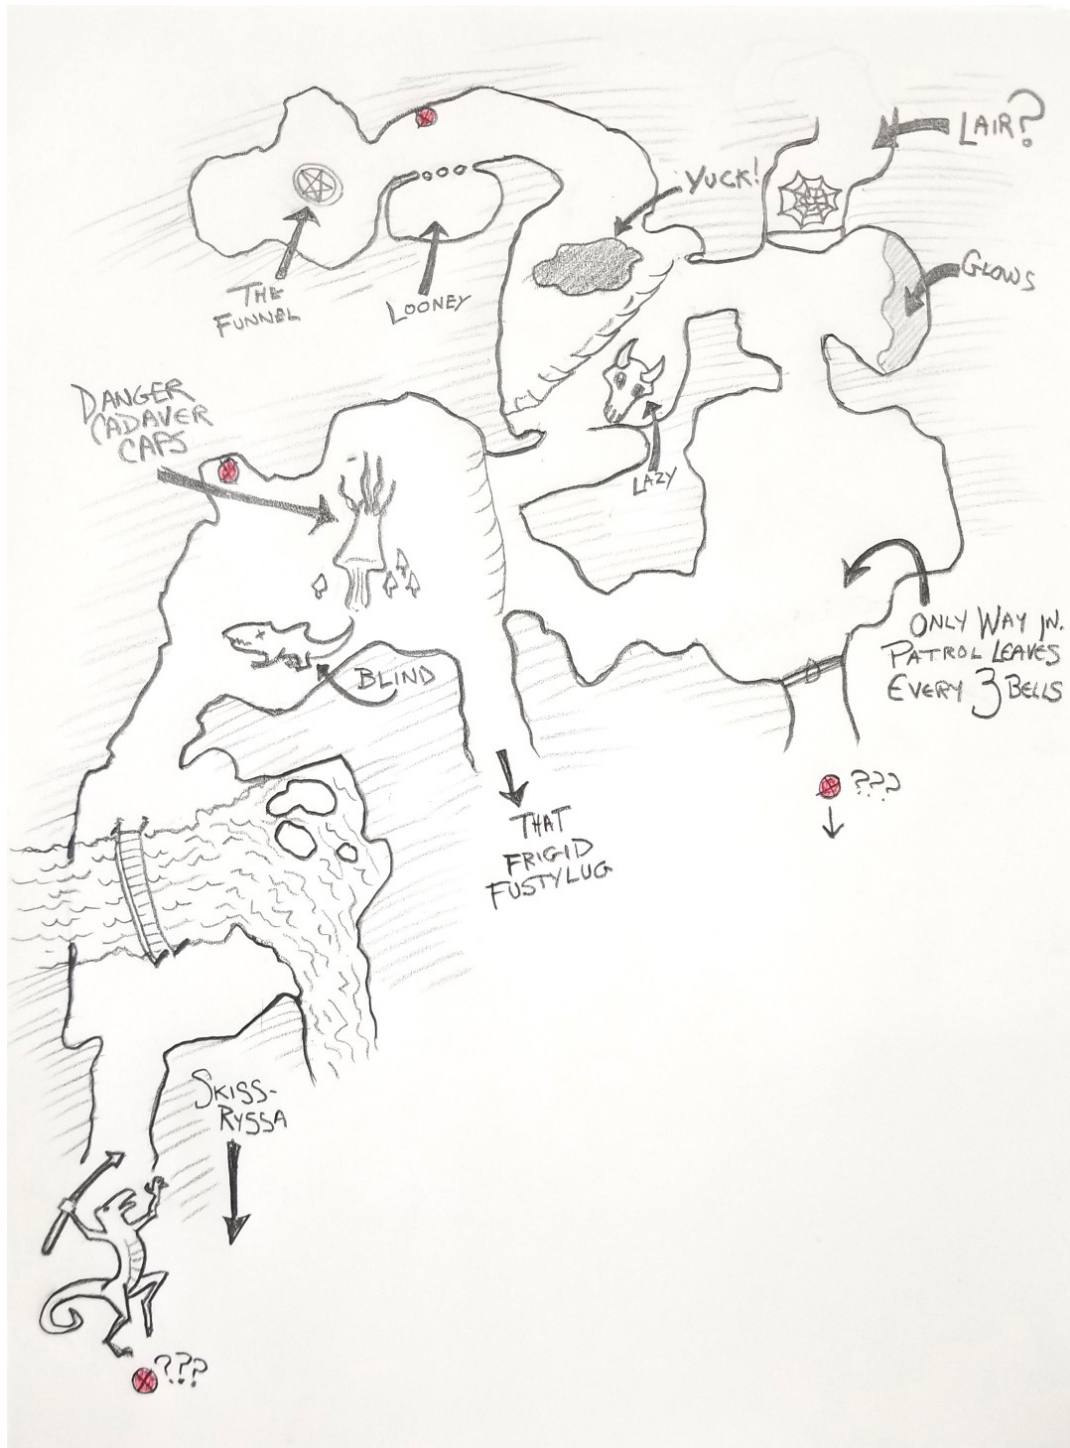 LAIR?
YUCK!
GLOWS
THE
FUNNEL
LOONEY
DANGER
CADAVER
CAPS
LAZY
ONLY WAY IN.
PATROL LEAVES
EVERY 3 BELLS
BLIND
D
???
THAT
FRIGID
FUSTYLUG
SKISS-
RYSSA
???